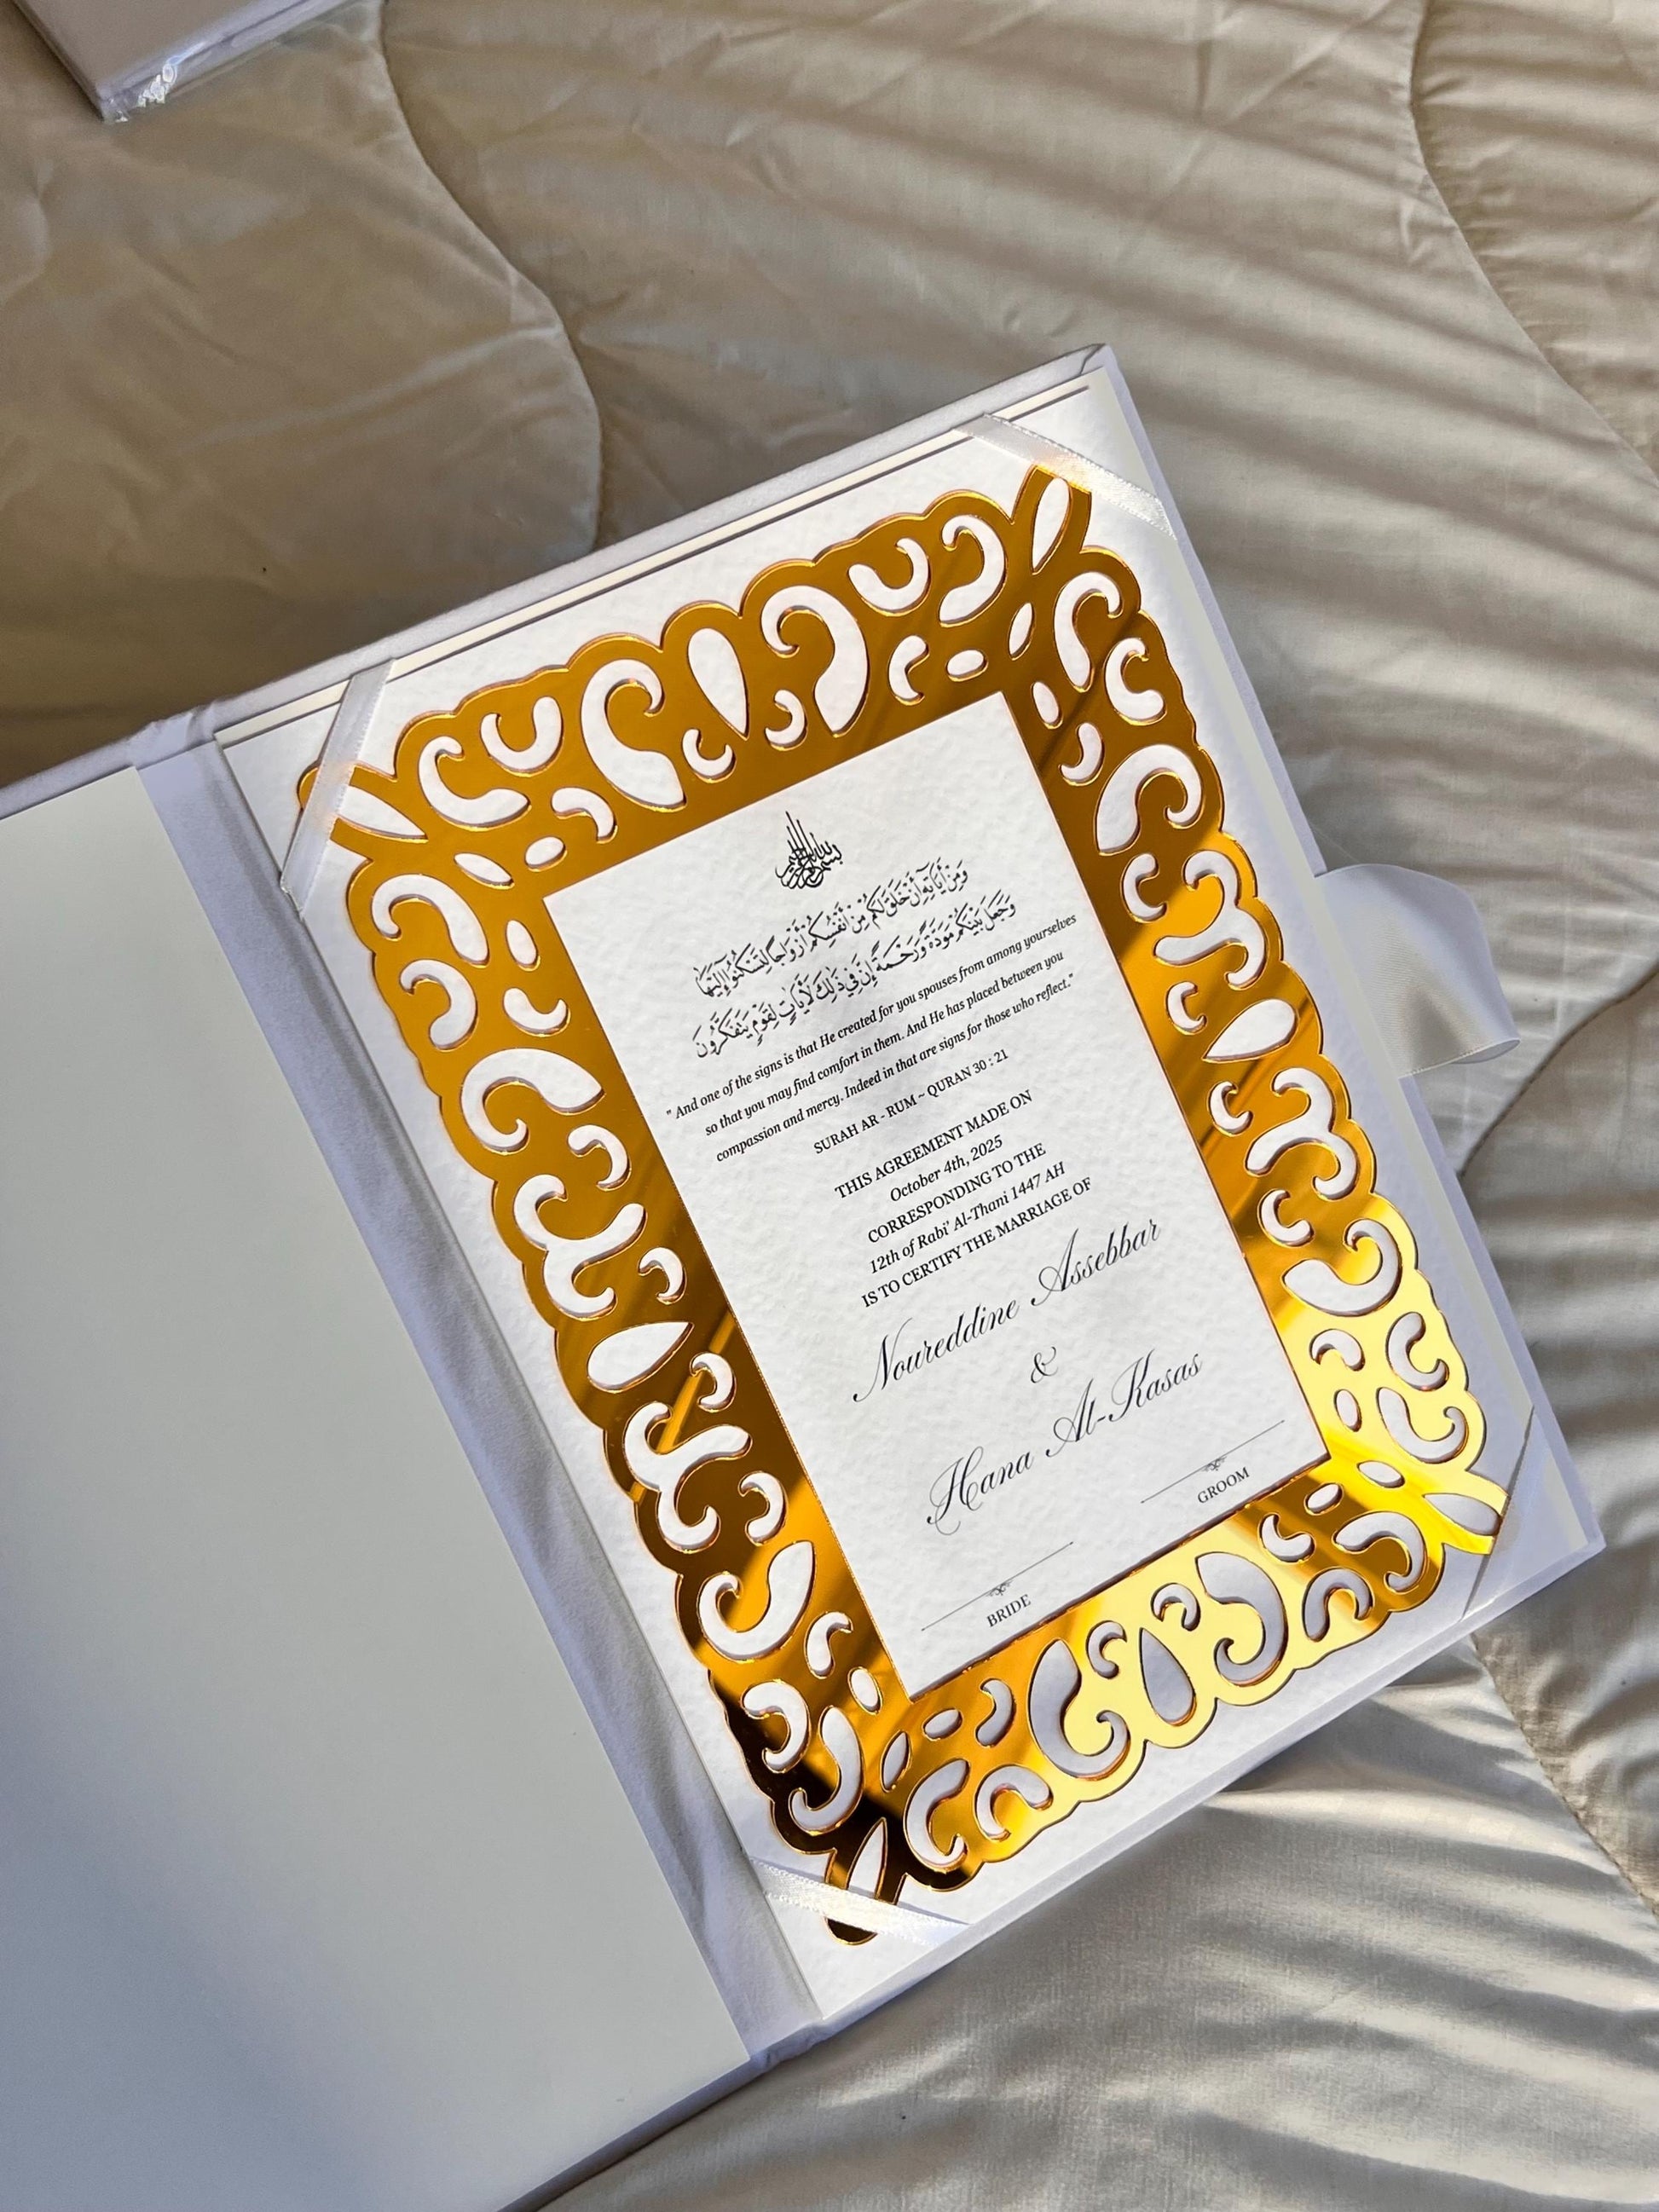 بسم الله الرحمن الرحيم
وَمِنْ آيَاتِهِ أَنْ خَلَقَ لَكُم مِّنْ أَنفُسِكُمْ أَزْوَاجًا لِّتَسْكُنُوا إِلَيْهَا
وَجَعَلَ بَيْنَكُم مَّوَدَّةً وَرَحْمَةً إِنَّ فِي ذَٰلِكَ لَآيَاتٍ لِّقَوْمٍ يَتَفَكَّرُونَ
" And one of the signs is that He created for you spouses from among yourselves
so that you may find comfort in them. And He has placed between you
compassion and mercy. Indeed in that are signs for those who reflect."
SURAH AR - RUM ~ QURAN 30 : 21
THIS AGREEMENT MADE ON
October 4th, 2025
CORRESPONDING TO THE
12th of Rabi' Al-Thani 1447 AH
IS TO CERTIFY THE MARRIAGE OF
Noureddine Assebbar
&
Hana Al-Kasas
BRIDE
GROOM